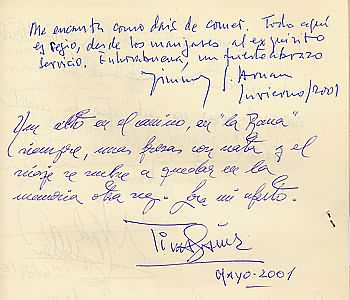 Me encanta como dais de comer. Todo aquí
es regio, desde los manjares al exquisito
servicio. Enhorabuena, un fuerte abrazo
Jimmy
Invierno/2001
Un alto en el camino, en "la Rana"
siempre, unas fresas con nata y el
viaje se vuelve a quedar en la
memoria otra vez. Con mi afecto.
Mayo-2001